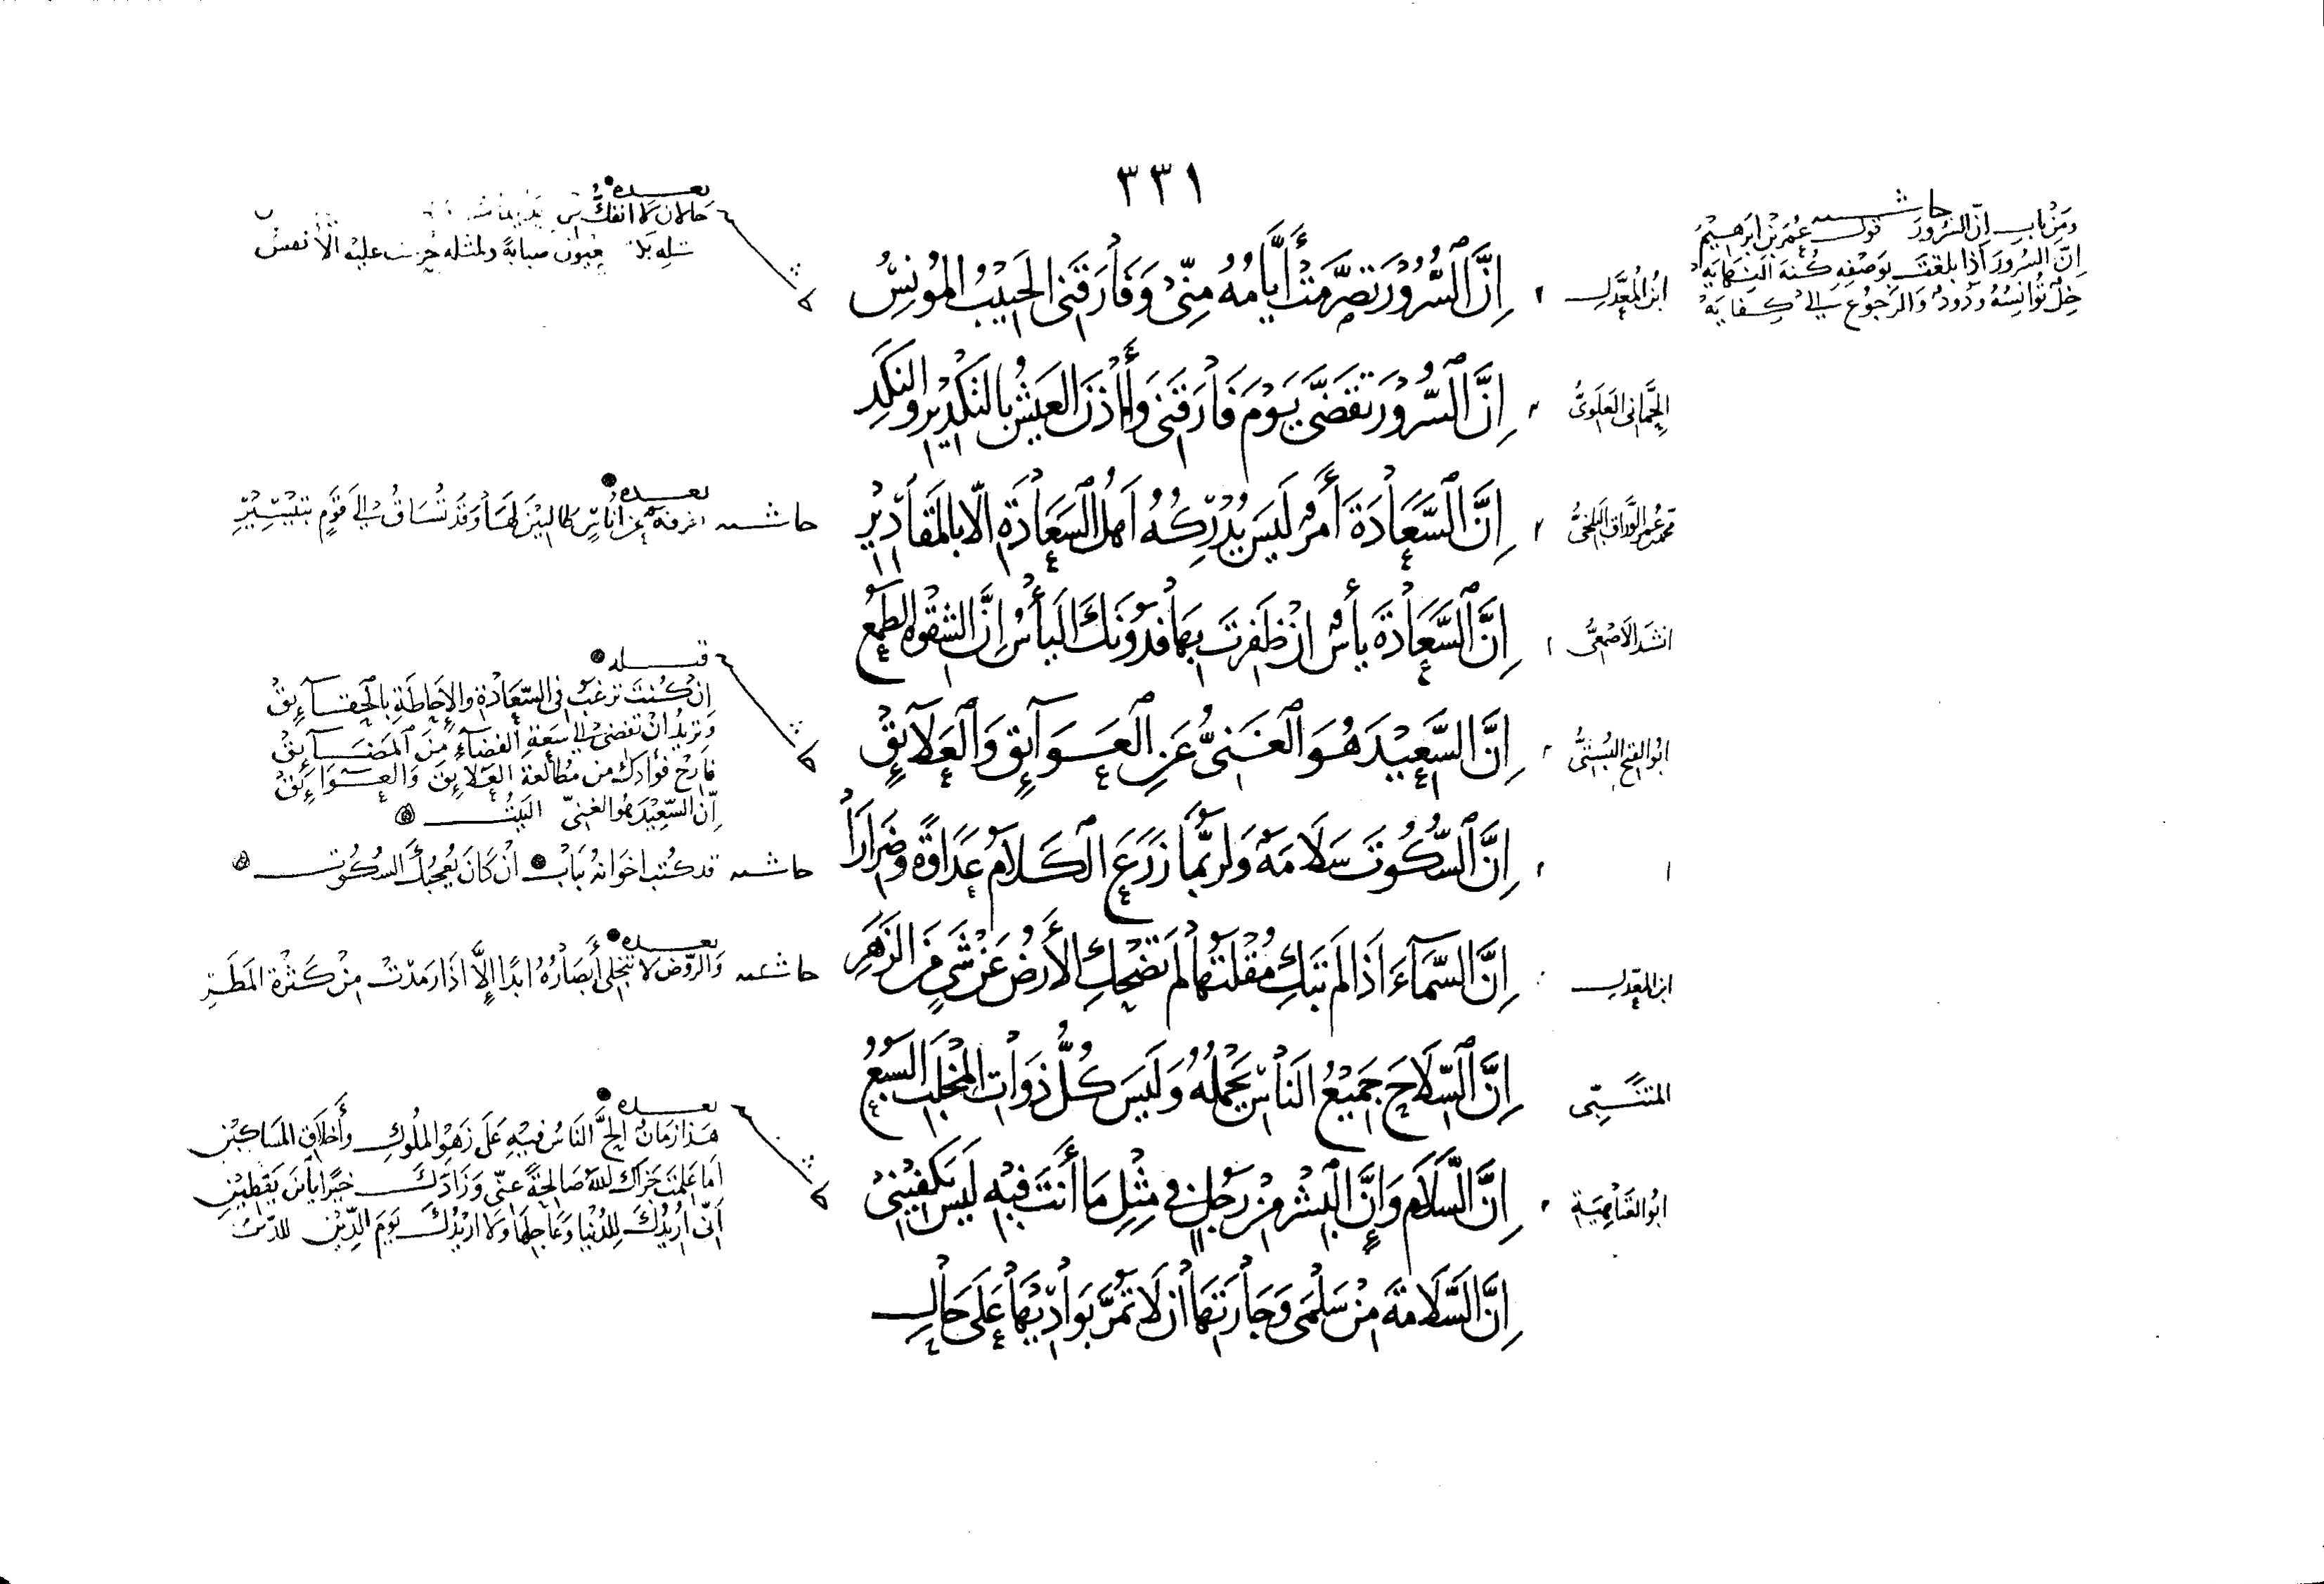 ٣٣١
حاشية
ومن باب إن السرور قول عمر بن ابرهيم
إن السرور إذا بلغت بوصفه كنه النهايه
خل تؤانسه ودود والرجوع إلى كفايه
ابن المعدل
إِنَّ السُّرُورَ تَصَرَّمَتْ أَيَّامُهُ مِنِّي وَفَارَقَنِي الحَبِيْبُ المُونِسُ
بعده
حالان لا انفك
عليه الأنفس
الحماني العلوي
إِنَّ السُّرُورَ تَقَضَّى يَوْمَ فَارَقَنِي وَأُذِنَ العَيْشُ بِالتَّكْدِيرِ والنَّكَدِ
محمد بن عمر الوراق البلخي
إِنَّ السَّعَادَةَ أَمْرٌ لَيسَ يُدْرِكُهُ أَهلُ السَّعَادَةِ إِلّا بِالمَقَادِيْرِ
حاشية بعده
عن أناسٍ طالبين لها وقد تساق إلى قومٍ بتيسير
انشد الأصمعي
إِنَّ السَّعَادَةَ يأسٌ إن ظَفِرتَ بِهَا فَدُونَكَ اليَأْسُ إِنَّ الشقوة الطَّمَعُ
ابو الفتح البستي
إِنَّ السَّعِيْدَ هُوَ الغَنِيُّ عَنِ العَوَآئِقِ وَالعَلَآئِقِ
قبله
إن كنت ترغب في السعادة والإحاطة بالحقآئق
وتريد ان تفضي إلى سعة الفضآء من المضآئق
فارح فؤادك من مطالعة العلائق والعوائق
إن السعيد هو الغني البيت
إِنَّ السُّكُوتَ سَلَامَةٌ وَلَرُبَّمَا زَرَعَ الكَلَامُ عَدَاوَةً وضِرَارَا
حاشية قد كتب اخوانه بباب ان كان يعجبك السكوت
ابن المعدل
إِنَّ السَّمَآءَ اذَا لَم تَبْكِ مُقْلَتُهَا لَم تَضْحَكِ الأَرْضُ عَنْ شَيءٍ مِنَ الزَّهَرِ
حاشية بعده
والروض لا تنجلي أبصاره ابدًا إلّا اذا رمدت من كثرة المطر
المتنبي
إِنَّ السِّلَاحَ جَمِيْعُ النَّاسِ يَحْمِلُهُ وَلَيسَ كُلُّ ذَوَاتِ المِخْلَبِ السَّبُعُ
ابو العتاهية
إِنَّ السَّلَامَ وَإِنَّ البِشْرَ مِنْ رَجُلٍ في مِثْلِ مَا أَنتَ فِيْهِ لَيسَ يَكْفِيْنِي
بعده
هذا زمان ألح الناس فيه على زهو الملوك وأخلاق المساكين
اما علمت جزاك الله صالحةً عني وزادك خيرًا يا بن يقطين
أني اريدك للدنيا وعاجلها ولا اريدك يوم الدين للدين
إِنَّ السَّلَامَةَ مِنْ سَلْمَى وَجَارَتِهَا ان لَا تَمُرَّ بِوَادِيْهَا عَلَى حَالِ